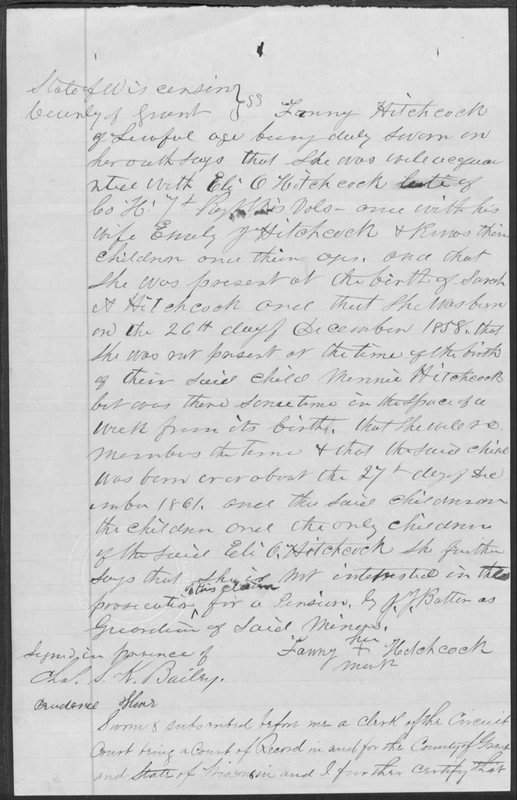 State of Wisconsin }
County of Grant } SS Fanny Hitchcock
of Lawful age being duly sworn on
her oath says that she was well acqua
nted with Eli O Hitchcock late of
Co H. 7th Regt Wis Vols - and with his
wife Emely J Hitchcock & knows their
children and their ages. and that
She was present at the birth of Sarah
A Hitchcock and that she was born
on the 26th day of December 1858. that
she was not present at the time of the birth
of their said child Minnie Hitchcock
but was there sometime in the space of a
week from its birth. that she well re
members the time & that the said child
was born on or about the 27th day of Dec
ember 1861. and the said children are
the children and the only children
of the said Eli O. Hitchcock She further
says that she is not interested in the
prosecution of this claim for a Pension, by J. J. Batten as
Guardian of said Minors.
Signed in presence of Fanny her + mark Hitchcock
Chas. S. K. Bailey.
Prudence
Sworn & subscribed before me a clerk of the Circuit
Court being a Court of Record in and for the County of Grant
and State of Wisconsin and I further certify that